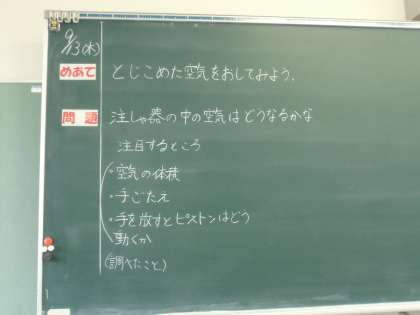 9/13(木)
めあて とじこめた空気をおしてみよう.
問題 注しゃ器の中の空気はどうなるかな
注目するところ
・空気の体積
・手ごたえ
・手を放すとピストンはどう
動くか
(調べたこと)